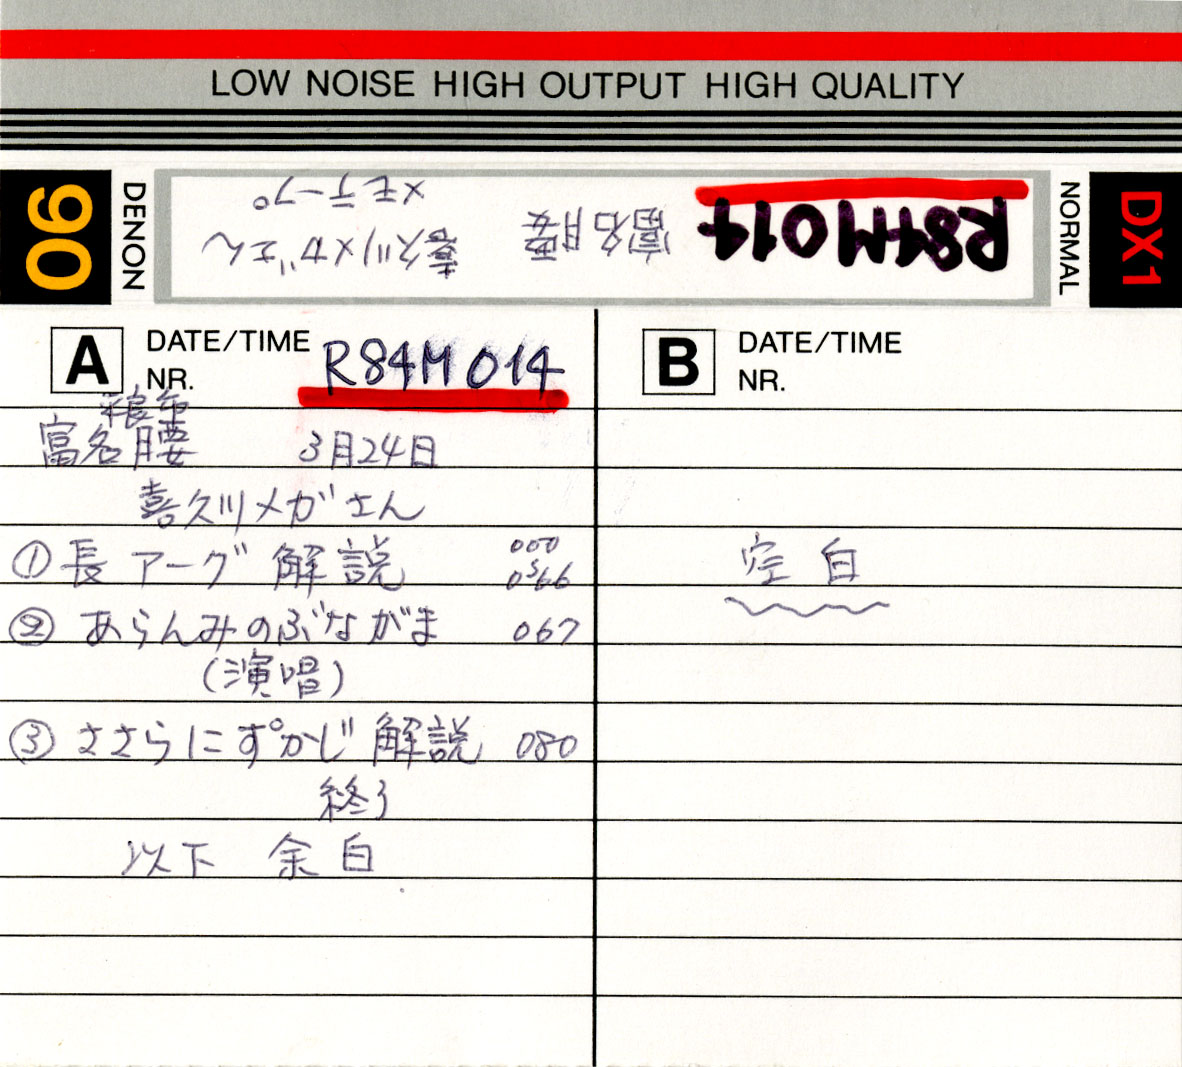 LOW NOISE HIGH OUTPUT HIGH QUALITY
90
DENON
R84M014
富名腰
喜久川メガさん
メモテープ
NORMAL
DX1
A
DATE/TIME
NR.
R84M014
富名腰 3月24日
喜久川メガさん
① 長アーグ 解説 000
066
② あらんみのぶながま 067
(演唱)
③ ささらにす゚かじ 解説 080
終了
以下 余白
B
DATE/TIME
NR.
空白